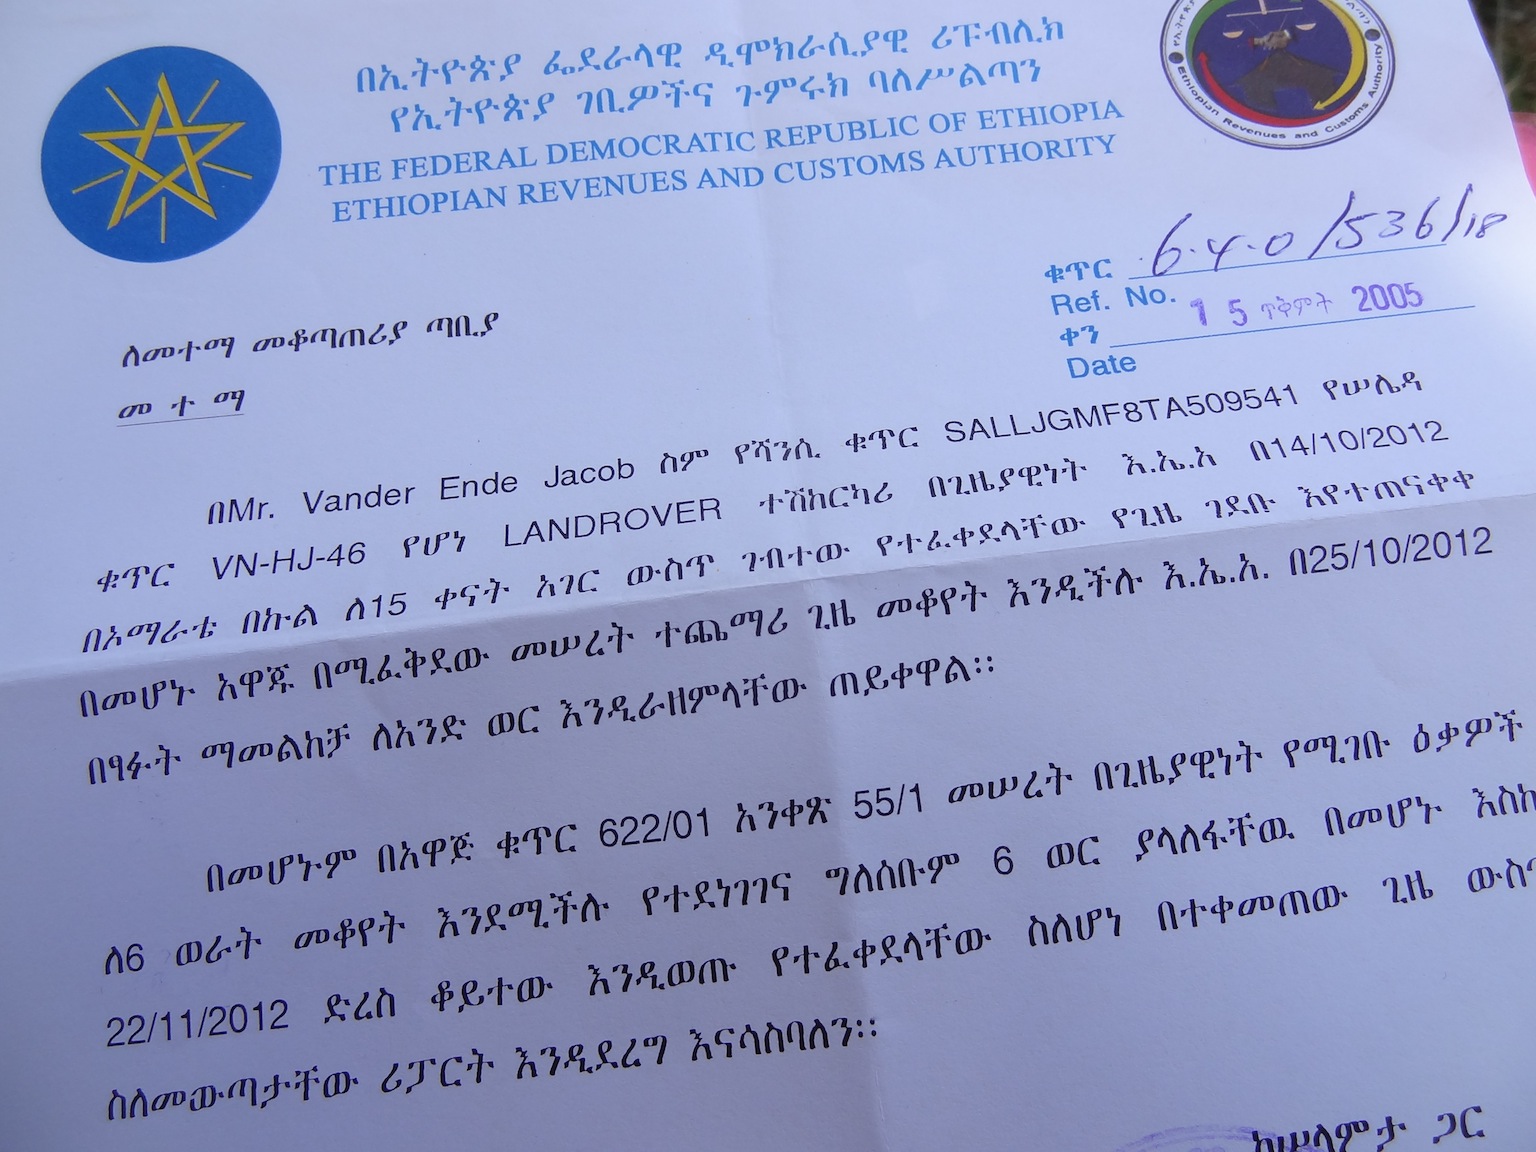 በኢትዮጵያ ፌደራላዊ ዲሞክራሲያዊ ሪፑብሊክ
የኢትዮጵያ ገቢዎችና ጉምሩክ ባለሥልጣን
THE FEDERAL DEMOCRATIC REPUBLIC OF ETHIOPIA
ETHIOPIAN REVENUES AND CUSTOMS AUTHORITY
Ethiopian Revenues and Customs Authority
ቁጥር 6.4.0/536/18
Ref. No.
ቀን 15 ጥቅምት 2005
Date
ለመተማ መቆጣጠሪያ ጣቢያ
መ ተ ማ
በMr. Vander Ende Jacob ስም የሻንሲ ቁጥር SALLJGMF8TA509541 የሠሌዳ
ቁጥር VN-HJ-46 የሆነ LANDROVER ተሽከርካሪ በጊዜያዊነት እ.ኤ.አ በ14/10/2012
በኦማራቴ በኩል ለ15 ቀናት አገር ውስጥ ገብተው የተፈቀደላቸው የጊዜ ገደቡ እየተጠናቀቀ
በመሆኑ አዋጁ በሚፈቅደው መሠረት ተጨማሪ ጊዜ መቆየት እንዲችሉ እ.ኤ.አ. በ25/10/2012
በፃፉት ማመልከቻ ለአንድ ወር እንዲራዘምላቸው ጠይቀዋል፡፡
በመሆኑም በአዋጅ ቁጥር 622/01 አንቀጽ 55/1 መሠረት በጊዜያዊነት የሚገቡ ዕቃዎች
ለ6 ወራት መቆየት እንደሚችሉ የተደነገገና ግለሰቡም 6 ወር ያላለፋቸዉ በመሆኑ እስከ
22/11/2012 ድረስ ቆይተው እንዲወጡ የተፈቀደላቸው ስለሆነ በተቀመጠው ጊዜ ውስጥ
ስለመውጣታቸው ሪፓርት እንዲደረግ እናሳስባለን፡፡
ከሠላምታ ጋር